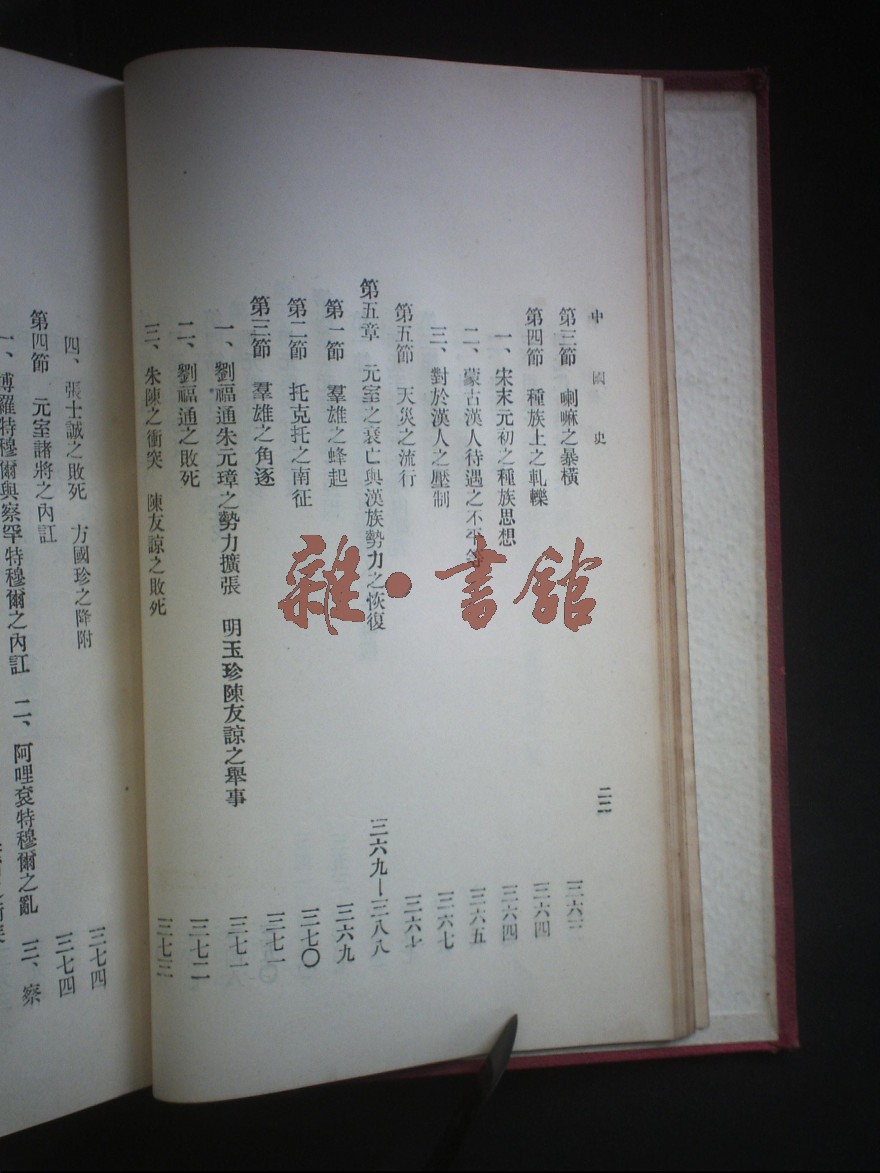 中國史
二二
第三節 喇嘛之暴橫 三六三
第四節 種族上之軋轢 三六四
一、宋末元初之種族思想 三六四
二、蒙古漢人待遇之不平等 三六五
三、對於漢人之壓制 三六七
第五節 天災之流行 三六七
第五章 元室之衰亡與漢族勢力之恢復 三六九—三八八
第一節 羣雄之蜂起 三六九
第二節 托克托之南征 三七〇
第三節 羣雄之角逐 三七一
一、劉福通朱元璋之勢力擴張 明玉珍陳友諒之舉事 三七一
二、劉福通之敗死 三七二
三、朱陳之衝突 陳友諒之敗死 三七三
四、張士誠之敗死 方國珍之降附 三七四
第四節 元室諸將之內訌 三七四
一、博羅特穆爾與察罕特穆爾之內訌 二、阿哩袞特穆爾之亂 三、察
雜·書館